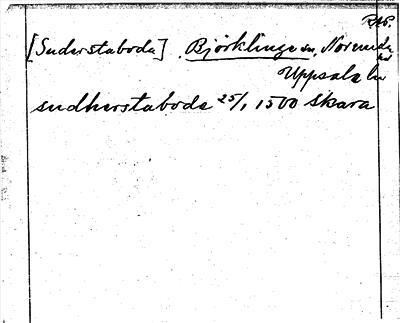 RAP.
[Suderstaboda] . Björklinge sn, Norunda hd
Uppsala län
sudherstaboda 25/1 1500 Skara